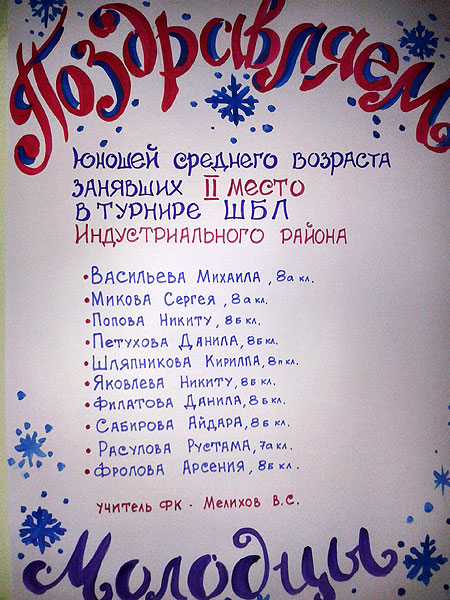 Поздравляем
юношей среднего возраста
занявших II место
в турнире ШБЛ
Индустриального района
• Васильева Михаила, 8а кл.
• Микова Сергея, 8а кл.
• Попова Никиту, 8б кл.
• Петухова Данила, 8б кл.
• Шляпникова Кирилла, 8п кл.
• Яковлева Никиту, 8б кл.
• Филатова Данила, 8б кл.
• Сабирова Айдара, 8б кл.
• Расулова Рустама, 7а кл.
• Фролова Арсения, 8б кл.
учитель ФК - Мелихов В.С.
Молодцы